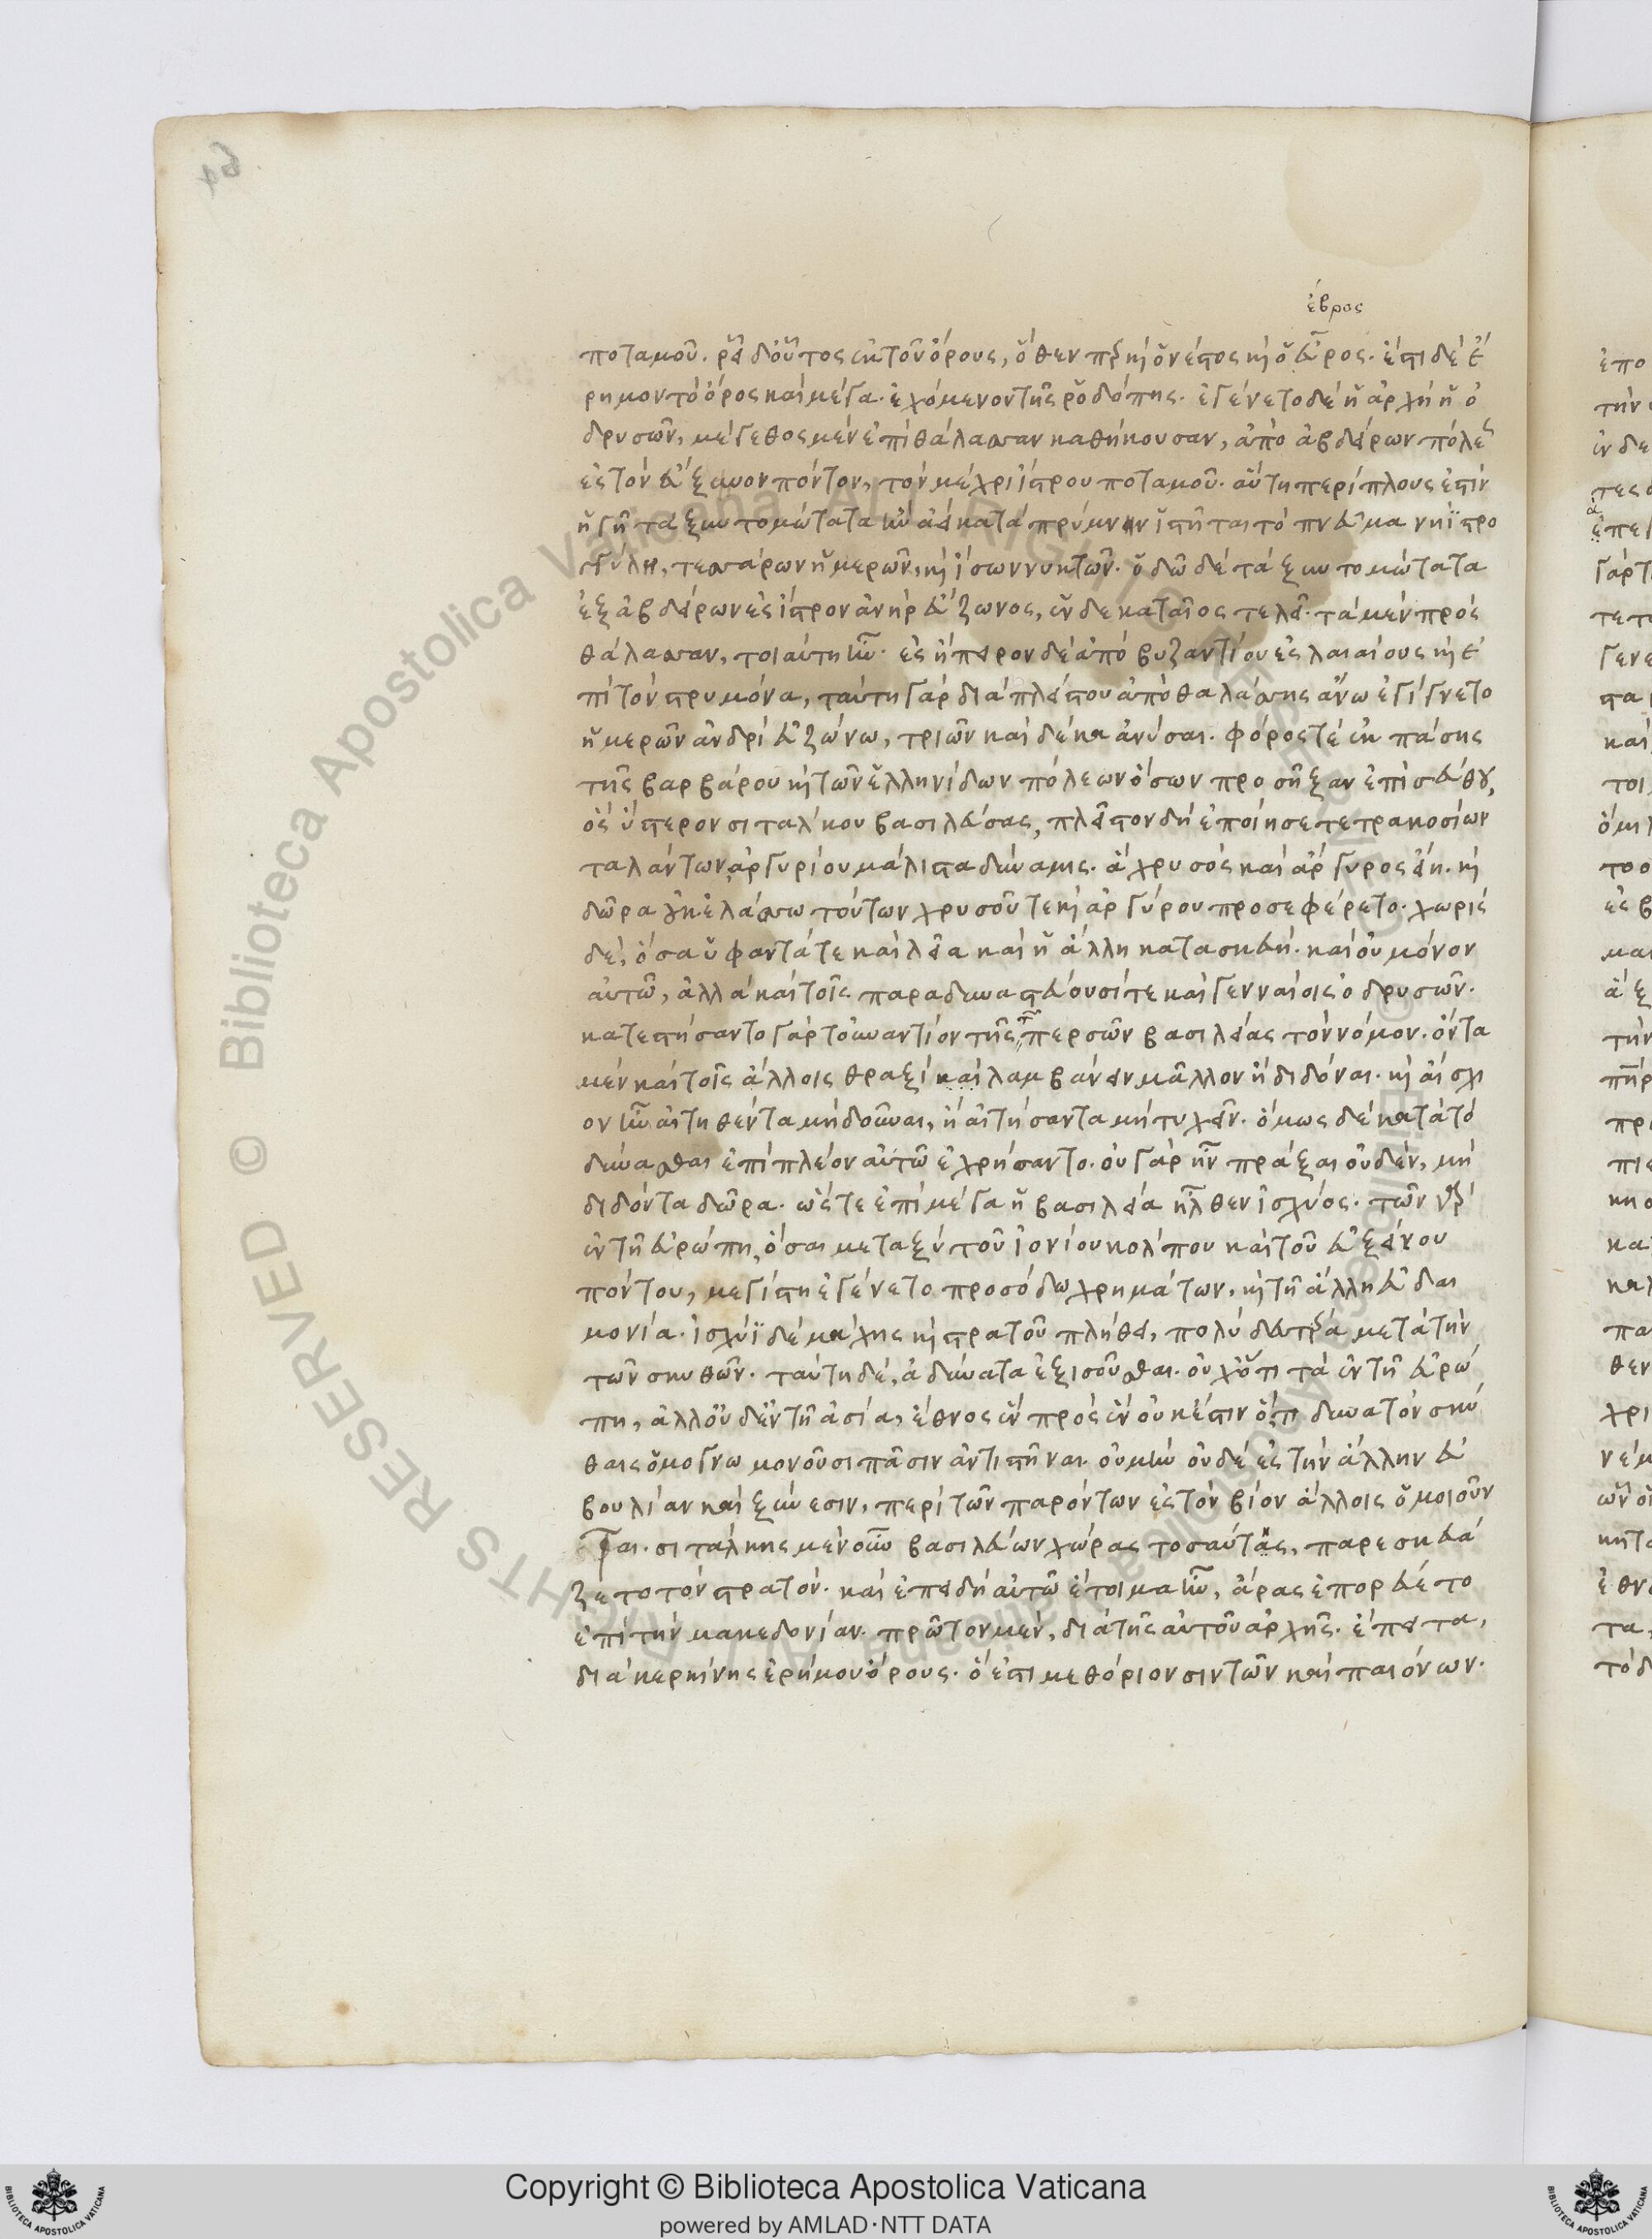 ἕβρος
ποταμοῦ. ῥεῖ δ' οὗτος ἐκ τοῦ ὄρους, ὅθεν περ καὶ ὁ νέστος καὶ ὁ εὖρος. ἔστι δὲ ἐ
ρημον τὸ ὄρος καὶ μέγα. ἐχόμενον τῆς ῥοδόπης. ἐγένετο δὲ ἡ ἀρχὴ ἡ ὀ
δρυσῶν, μέγεθος μὲν ἐπὶ θάλασσαν καθήκουσαν, ἀπὸ ἀβδήρων πόλεως
ἐς τὸν εὔξεινον πόντον, τὸν μέχρι ἴστρου ποταμοῦ. αὕτη περίπλους ἐστὶν
ἡ γῆ τὰ ξυντομώτατα ἢν ἀεὶ κατὰ πρύμναν ἱστῆται τὸ πνεῦμα νηῒ στρο
γγύλη, τεσσάρων ἡμερῶν, καὶ ἴσων νυκτῶν. ὁδῶ δὲ τὰ ξυντομώτατα
ἐξ ἀβδήρων ἐς ἴστρον ἀνὴρ εὔζωνος, ἑνδεκαταῖος τελεῖ. τὰ μὲν πρὸς
θάλασσαν, τοιαύτη ἦν. ἐς ἤπειρον δὲ ἀπὸ βυζαντίου ἐς λαιαίους καὶ ἐ
πὶ τὸν στρυμόνα, ταύτη γὰρ διὰ πλείστου ἀπὸ θαλάσσης ἄνω ἐγίγνετο
ἡμερῶν ἀνδρὶ εὐζώνω, τριῶν καὶ δέκα ἀνύσαι. φόρος τέ ἐκ πάσης
τῆς βαρβάρου καὶ τῶν ἑλληνίδων πόλεων ὅσων προσῆξαν ἐπὶ σεύθου,
ὃς ὕστερον σιτάλκου βασιλεύσας, πλεῖστον δὴ ἐποίησε τετρακοσίων
ταλάντων ἀργυρίου μάλιστα δύναμις. ἃ χρυσὸς καὶ ἄργυρος εἴη. καὶ
δῶρα οὐκ ἐλάσσω τούτων χρυσοῦ τε καὶ ἀργύρου προσεφέρετο. χωρὶς
δὲ, ὅσα ὑφαντά τε καὶ λεῖα καὶ ἡ ἄλλη κατασκευή. καὶ οὐ μόνον
αὐτῶ, ἀλλὰ καὶ τοῖς παραδυναστεύουσί τε καὶ γενναίοις ὀδρυσῶν.
κατεστήσαντο γὰρ τοὐναντίον τῆς τῶν περσῶν βασιλείας τὸν νόμον. ὄντα
μὲν καὶ τοῖς ἄλλοις θραξὶ καὶ λαμβάνειν μᾶλλον ἢ διδόναι. καὶ αἴσχι
ον ἦν αἰτηθέντα μὴ δοῦναι, ἢ αἰτήσαντα μὴ τυχεῖν. ὅμως δὲ κατὰ τὸ
δύνασθαι ἐπὶ πλέον αὐτῶ ἐχρήσαντο. οὐ γὰρ ἦν πρᾶξαι οὐδὲν, μὴ
διδόντα δῶρα. ὥστε ἐπὶ μέγα ἡ βασιλεία ἦλθεν ἰσχύος. τῶν γὰρ
ἐν τῆ εὐρώπη, ὅσαι μεταξὺ τοῦ ἰονίου κόλπου καὶ τοῦ εὐξείνου
πόντου, μεγίστη ἐγένετο προσόδω χρημάτων, καὶ τῆ ἄλλη εὐδαι
μονία. ἰσχύϊ δὲ μάχης καὶ στρατοῦ πλήθει, πολὺ δευτέρα μετὰ τὴν
τῶν σκυθῶν. ταύτη δὲ, ἀδύνατα ἐξισοῦσθαι. οὐχ ὅτι τὰ ἐν τῆ εὐρώ
πη, ἀλλ' οὐδ' ἐν τῆ ἀσία, ἔθνος ἓν πρὸς ἓν οὐκ ἔστιν ὅτι δυνατὸν σκύ
θαις ὁμογνωμονοῦσι πᾶσιν ἀντιστῆναι. οὐ μὴν οὐδὲ ἐς τὴν ἄλλην εὐ
βουλίαν καὶ ξύνεσιν, περὶ τῶν παρόντων ἐς τὸν βίον ἄλλοις ὁμοιοῦν
ται. σιτάλκης μὲν οὖν βασιλεύων χώρας τοσαύτης, παρεσκευά
ζετο τὸν στρατόν. καὶ ἐπειδὴ αὐτῶ ἕτοιμα ἦν, ἄρας ἐπορεύετο
ἐπὶ τὴν μακεδονίαν. πρῶτον μὲν, διὰ τῆς αὑτοῦ ἀρχῆς. ἔπειτα,
διὰ κερκίνης ἐρήμου ὄρους. ὅ ἐστι μεθόριον σιντῶν καὶ παιόνων.
Copyright © Biblioteca Apostolica Vaticana
powered by AMLAD·NTT DATA